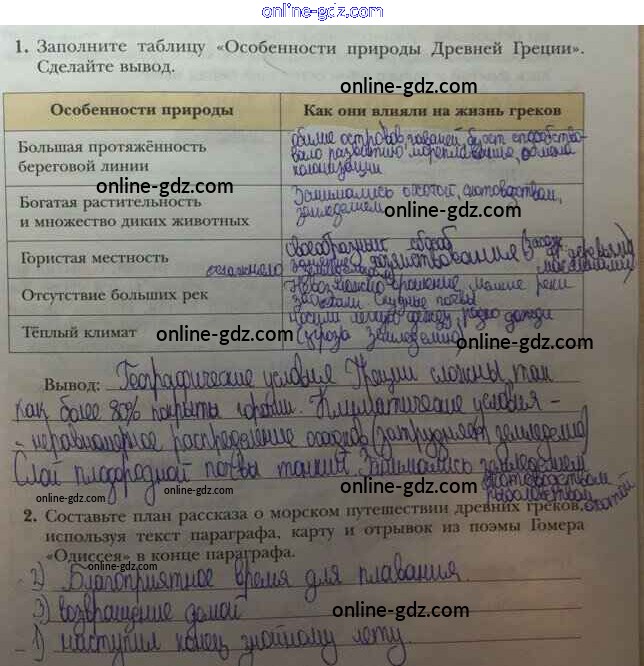 online-gdz.com
1. Заполните таблицу «Особенности природы Древней Греции».
Сделайте вывод.
online-gdz.com
Особенности природы
Как они влияли на жизнь греков
Большая протяжённость
береговой линии
обилие островов гаваней бухт способство-
вало развитию мореплавания, обмена
колонизации
online-gdz.com
Богатая растительность
и множество диких животных
Занимались охотой, скотоводством,
земледелием
online-gdz.com
Гористая местность
Своеобразный способ
хозяйствования
осложнено земледелие
Отсутствие больших рек
Невозможно орошение, мелкие реки
Скудные почвы
Тёплый климат
носили легкую одежду, редко дожди
(угроза земледелию)
online-gdz.com
online-gdz.com
Вывод: Географические условия Греции сложны, так
как более 80% покрыты горами. Климатические условия -
- неравномерное распределение осадков (затрудняет земледелие)
Слой плодородной почвы тонкий. Занимались земледелием
скотоводством
рыболовством, охотой
online-gdz.com
online-gdz.com
2. Составьте план рассказа о морском путешествии древних греков,
используя текст параграфа, карту и отрывок из поэмы Гомера
«Одиссея» в конце параграфа.
online-gdz.com
2) Благоприятное время для плавания
3) возвращение домой
online-gdz.com
1) наступил конец знойному лету
online-gdz.com